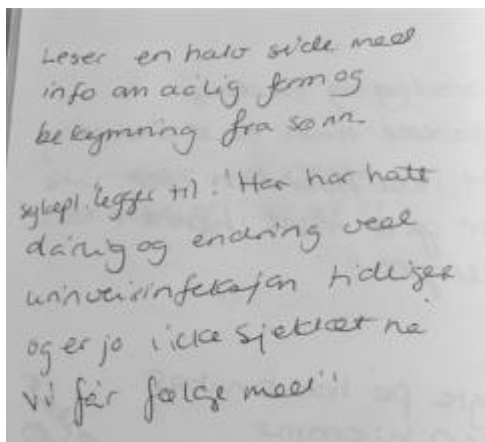 Leser en halv side med
info om dårlig form og
bekymring fra sønn.
sykepl. legger til: "Han har hatt
dårlig og endring ved
urinveisinfeksjon tidligere
og er jo ikke sjekket nå
vi får følge med"